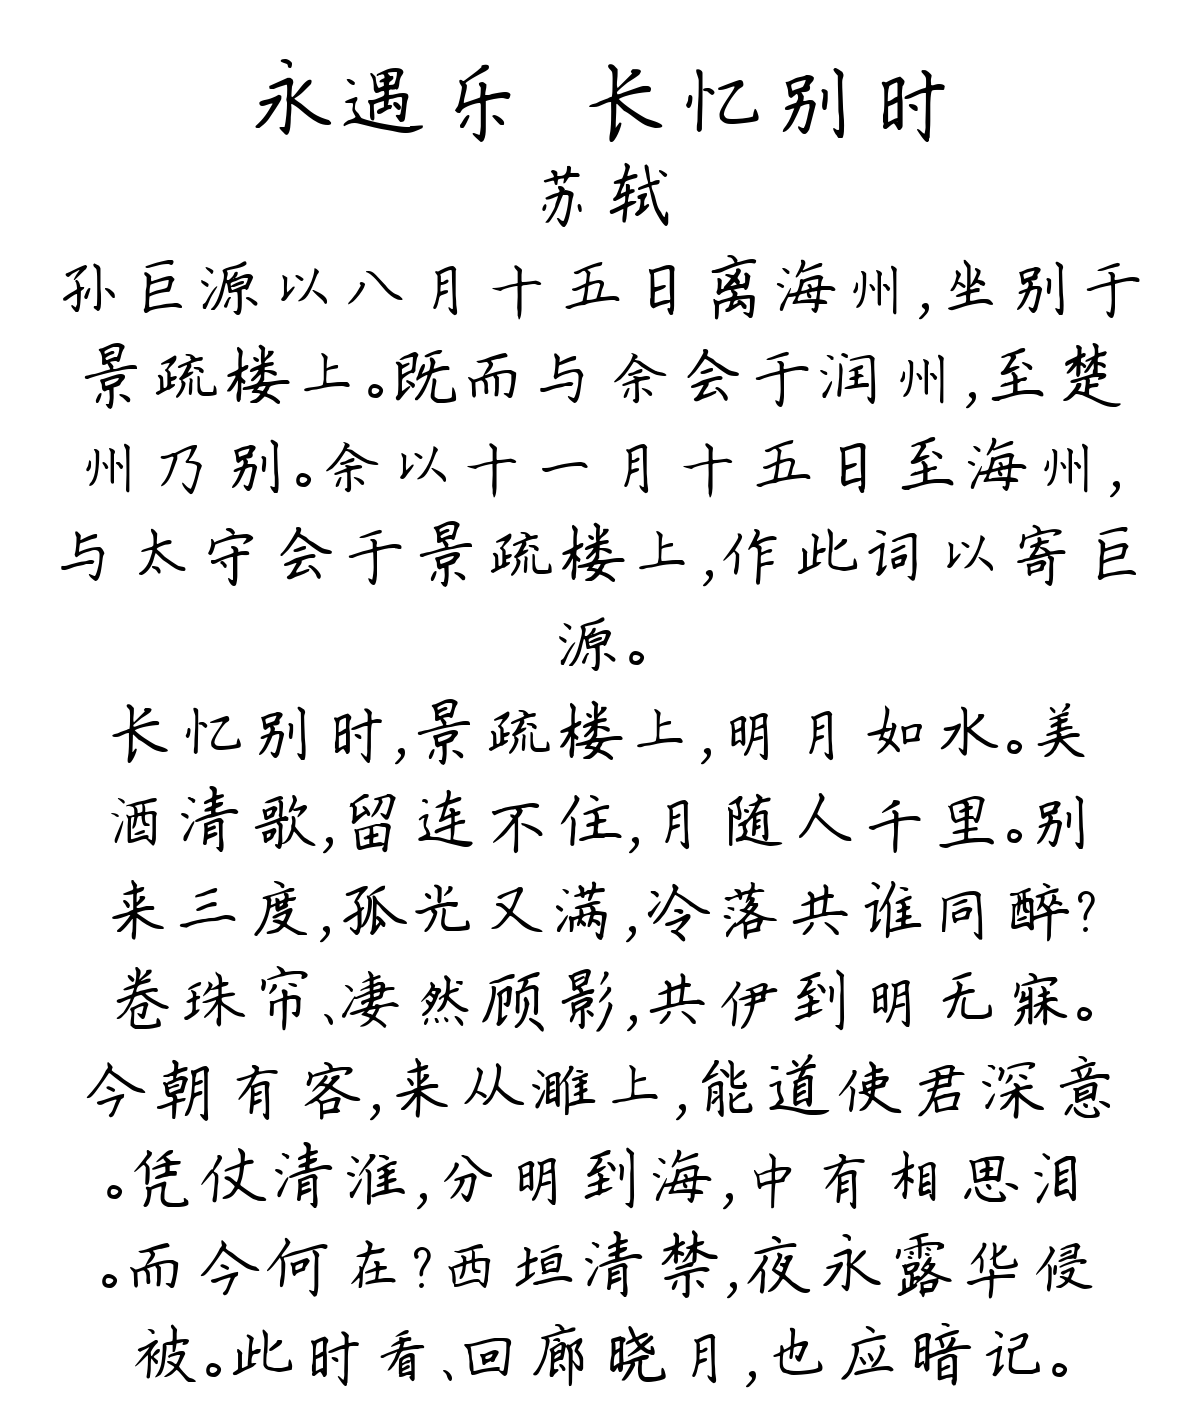 永遇乐 长忆别时
苏轼
孙巨源以八月十五日离海州,坐别于
景疏楼上。既而与余会于润州,至楚
州乃别。余以十一月十五日至海州,
与太守会于景疏楼上,作此词以寄巨
源。
长忆别时,景疏楼上,明月如水。美
酒清歌,留连不住,月随人千里。别
来三度,孤光又满,冷落共谁同醉?
卷珠帘、凄然顾影,共伊到明无寐。
今朝有客,来从濉上,能道使君深意
。凭仗清淮,分明到海,中有相思泪
。而今何在?西垣清禁,夜永露华侵
被。此时看、回廊晓月,也应暗记。